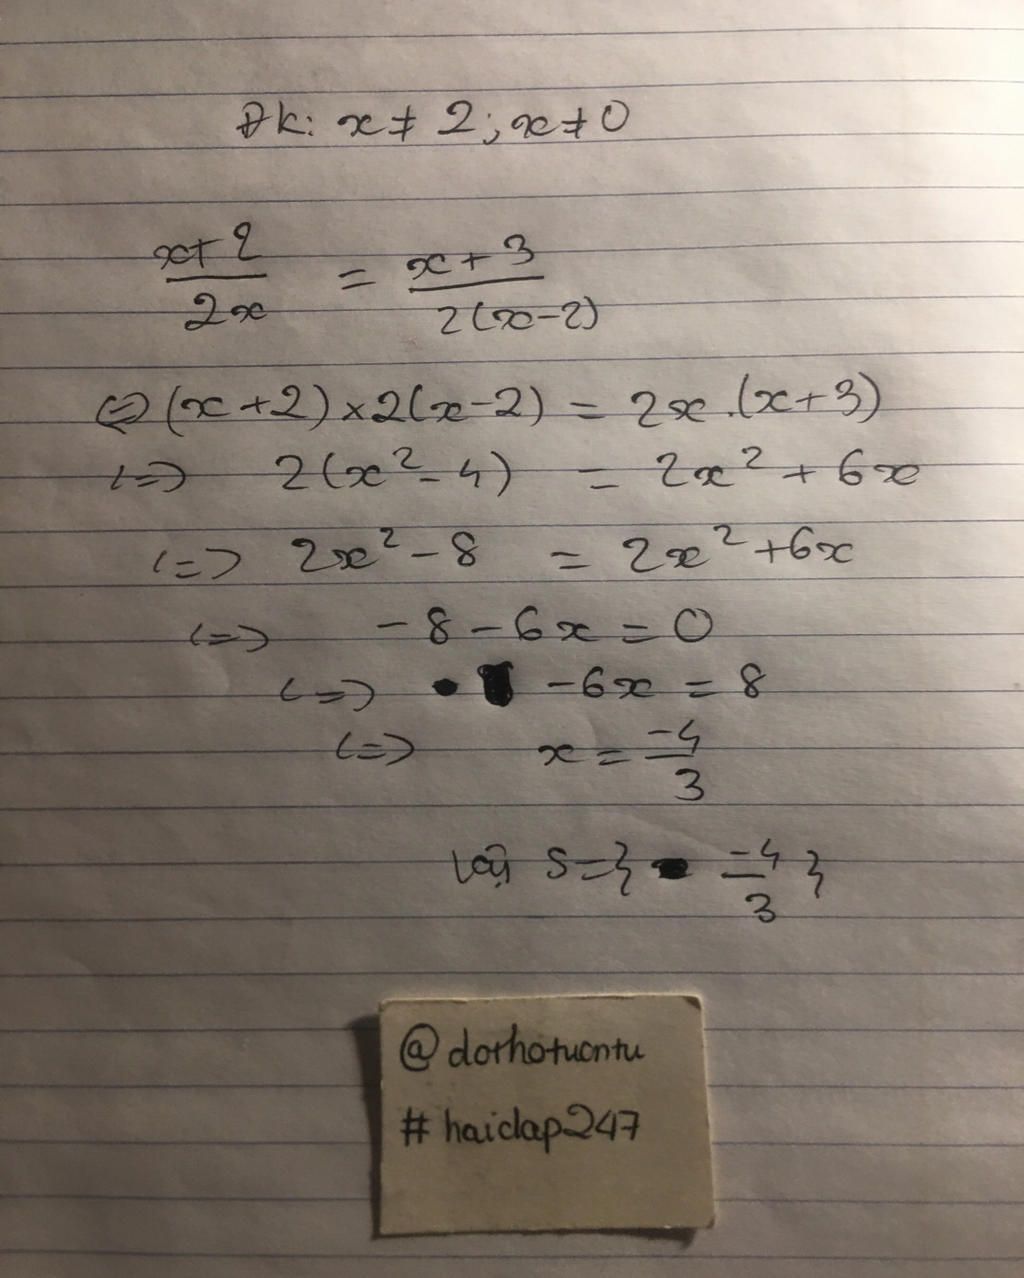 Đk: x ≠ 2; x ≠ 0
x+2/2x = x+3/2(x-2)
<=> (x+2)×2(x-2) = 2x.(x+3)
<=> 2(x²-4) = 2x²+6x
<=> 2x²-8 = 2x²+6x
<=> -8-6x=0
<=> -6x=8
<=> x=-4/3
Vậy S={-4/3}
@dorhotuontu
#haidap247